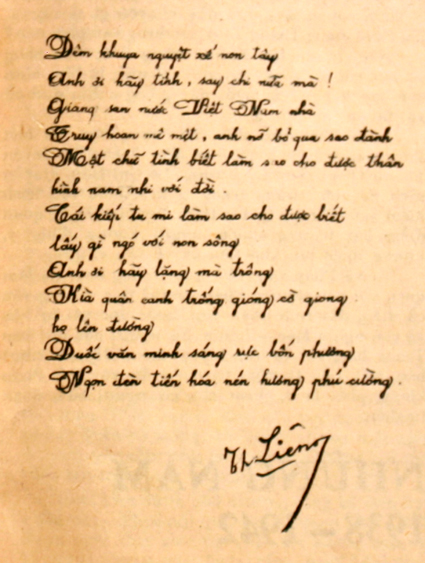 Đêm khuya nguyệt xế non tây
Anh ơi hãy tỉnh, say chi nữa mà !
Giang san nước Việt Nam nhà
Truy hoan mê mệt, anh nỡ bỏ qua sao đành
Một chữ tình biết làm sao cho được thân
hình nam nhi với đời .
Cái kiếp tu mi làm sao cho được biết
lấy gì ngó với non sông
Anh ơi hãy lặng mà trông
Kìa quân canh trống gióng cờ giong
họ lên đường
Đuốc văn minh sáng rực bốn phương
Ngọn đèn tiến hóa nén hương phú cường .
Th. Liêng
NHỮNG NĂM
1938 - 1942